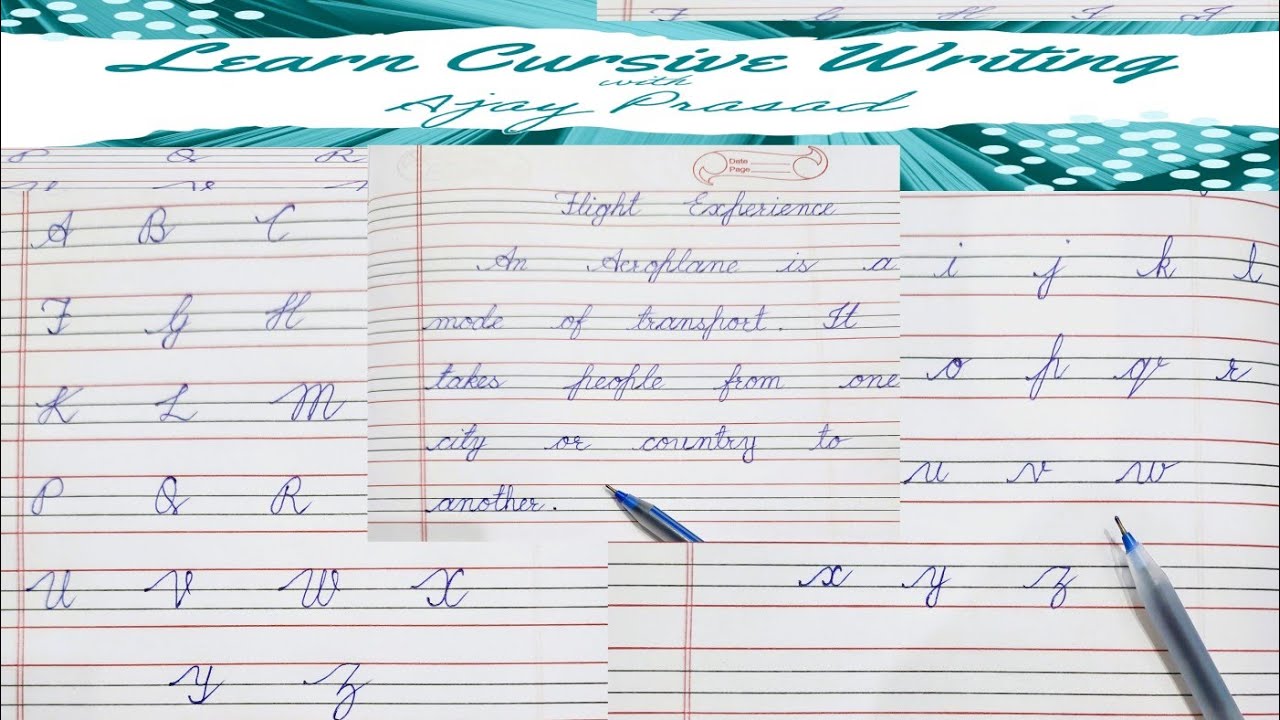 F G H I J
Learn Cursive Writing
with
Ajay Prasad
P Q R
A B C
F G H
K L M
P Q R
U V W X
Y Z
Date
Page
Flight Experience
An Aeroplane is a
mode of transport. It
takes people from one
city or country to
another.
i j k l
o p q r
u v w
x y z